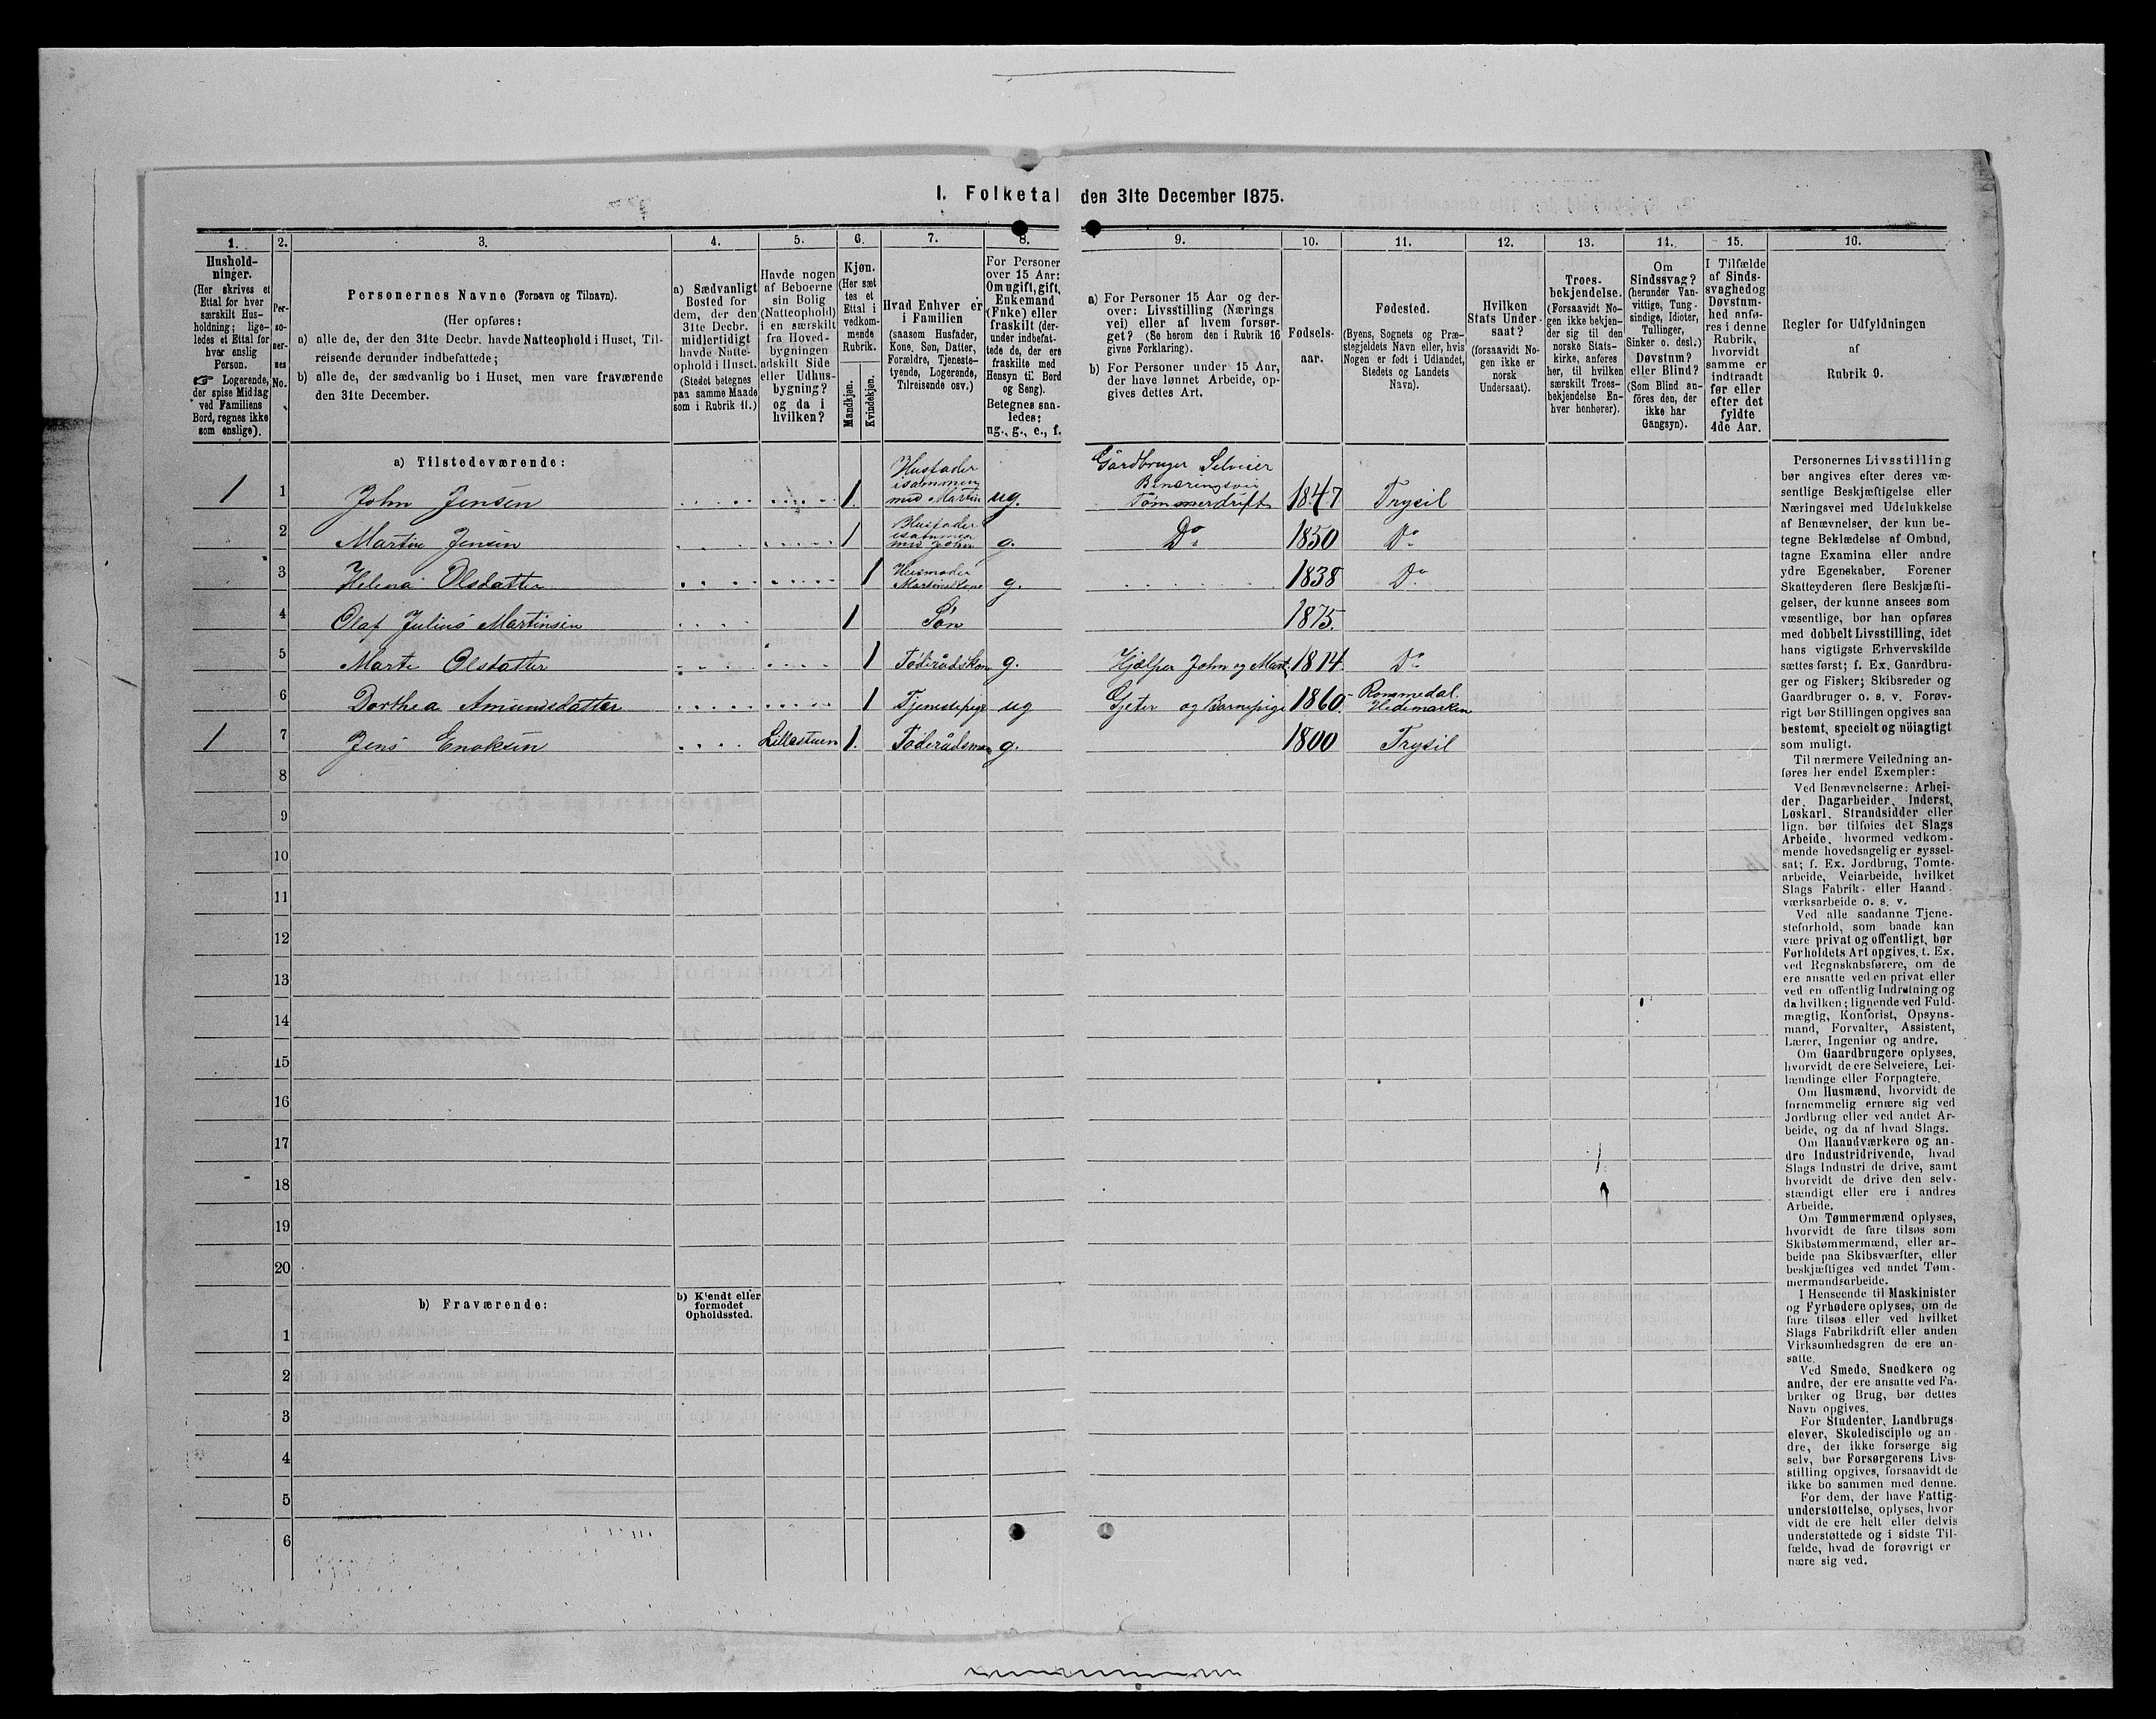 1. Folketal den 31te December 1875.
1. 2. 3. 4. 5. 6. 7. 8. 9. 10. 11. 12. 13. 14. 15. 16.
Hushold-
ninger.
(Her skrives et
Ettal for hver
særskilt Hus-
holdning; lige-
ledes et Ettal for
hver enslig
Person.
☞ Logerende,
der spise Middag
ved Familiens
Bord, regnes ikke
som enslige).
Per-
so-
ner-
nes
No.
Personernes Navne (Fornavn og Tilnavn).
(Her opføres:
a) alle de, der den 31te Decbr. havde Natteophold i Huset, Til-
reisende derunder indbefattede;
b) alle de, der sædvanlig bo i Huset, men vare fraværende
den 31te December.
a) Sædvanligt
Bosted for
dem, der den
31te Decbr.
midlertidigt
havde Natte-
ophold i Huset.
(Stedet betegnes
paa samme Maade
som i Rubrik 11.)
Havde nogen
af Beboerne
sin Bolig
(Natteophold)
i en særskilt
fra Hoved-
bygningen
adskilt Side
eller Udhus-
bygning?
og da i
hvilken?
Kjøn.
(Her sæt
tes et
Ettal i
vedkom-
mende
Rubrik.
Mandkjøn.
Kvindekjøn.
Hvad Enhver er
i Familien
(saasom Husfader,
Kone, Søn, Datter,
Forældre, Tjeneste-
tyende, Logerende,
Tilreisende osv.)
For Personer
over 15 Aar:
Om ugift, gift,
Enkemand
(Enke) eller
fraskilt (der-
under indbefat-
tede de, der ere
fraskilte med
Hensyn til Bord
og Seng).
Betegnes saa-
ledes:
ug., g., e., f.
a) For Personer 15 Aar og der-
over: Livsstilling (Nærings
vei) eller af hvem forsør-
get? (Se herom den i Rubrik 16
givne Forklaring).
b) For Personer under 15 Aar,
der have lønnet Arbeide, op-
gives dettes Art.
Fødsels-
aar.
Fødested.
(Byens, Sognets og Præ-
stegjeldets Navn eller, hvis
Nogen er født i Udlandet,
Stedets og Landets
Navn).
Hvilken
Stats Under-
saat?
(forsaavidt No-
gen ikke er
norsk
Undersaat).
Troes-
bekjendelse.
(Forsaavidt No-
gen ikke bekjen-
der sig til den
norske Stats-
kirke, anføres
her, til hvilken
særskilt Troes-
bekjendelse En-
hver henhører).
Om
Sindssvag?
(herunder Van-
vittige, Tung-
sindige, Idioter,
Tullinger,
Sinker o. desl.)
Døvstum?
eller Blind?
(Som Blind an-
föres den, der
ikke har
Gangsyn).
I Tilfælde
af Sinds-
svaghed og
Døvstum-
hed anfø-
res i denne
Rubrik,
hvorvidt
samme er
indtraadt
før eller
efter det
fyldte
4de Aar.
Regler for Udfyldningen
af
Rubrik 9.
a) Tilstedeværende:
1 1 John Jensen 1. Husfader isammen med Martin ug. Gårdbruger Selveier Benæringsvei Tømmerdrift 1847 Trysil
2 Martin Jensen 1 Husfader isammen med John g. Do 1850 Do
3 Helena Olsdatter 1 Husmoder Martins Kone g. 1838 Do
4 Olaf Julius Martinsen 1 Søn 1875.
5 Marte Olsdatter 1 Föderådskone g. Hjælper John og Mart. 1814 Do
6 Dorthea Amundsdatter 1 Tjenestepige ug Gjeter og Barnepige 1860 Rommedal. Hedemarken
1 7 Jens Enoksen Lillestuen 1. Föderådsman g. 1800 Trysil
8
9
10
11
12
13
14
15
16
17
18
19
20
b) Fraværende:
b) Kjendt eller
formodet
Opholdssted.
1
2
3
4
5
6
Personernes Livsstilling
bør angives efter deres væ-
sentlige Beskjæftigelse eller
Næringsvei med Udelukkelse
af Benævnelser, der kun be-
tegne Beklædelse af Ombud,
tagne Examina eller andre
ydre Egenskaber. Forener
Skatteyderen flere Beskjæfti-
gelser, der kunne ansees som
væsentlige, bør han opføres
med dobbelt Livsstilling, idet
hans vigtigste Erhvervskilde
sættes først; f. Ex. Gaardbru-
ger og Fisker; Skibsreder og
Gaardbruger o. s. v. Forøv-
rigt bør Stillingen opgives saa
bestemt, specielt og nöiagtigt
som muligt.
Til nærmere Veiledning an-
føres her endel Exempler:
Ved Benævnelserne: Arbei-
der, Dagarbeider, Inderst,
Løskarl, Strandsidder eller
lign. bør tilføies det Slags
Arbeide, hvormed vedkom-
mende hovedsagelig er syssel-
sat; f. Ex. Jordbrug, Tomte-
arbeide, Veiarbeide, hvilket
Slags Fabrik- eller Haand-
værksarbeide o. s. v.
Ved alle saadanne Tjene-
steforhold, som baade kan
være privat og offentligt, bør
Forholdets Art opgives, t. Ex.
ved Regnskabsførere, om de
ere ansatte ved en privat eller
ved en offentlig Indretning og
da hvilken; lignende ved Fuld-
mægtig, Kontorist, Opsyns-
mand, Forvalter, Assistent,
Lærer, Ingeniør og andre.
Om Gaardbrugere oplyses,
hvorvidt de ere Selveiere, Lei-
lændinge eller Forpagtere.
Om Husmænd, hvorvidt de
fornemmelig ernære sig ved
Jordbrug eller ved andet Ar-
beide, og da af hvad Slags.
Om Haandværkere og an-
dre Industridrivende, hvad
Slags Industri de drive, samt
hvorvidt de drive den selv-
stændigt eller ere i andres
Arbeide.
Om Tømmermænd oplyses,
hvorvidt de fare tilsøs som
Skibstømmermænd, eller ar-
beide paa Skibsværfter, eller
beskjæftiges ved andet Tøm-
mermandsarbeide.
I Henseende til Maskinister
og Fyrbødere oplyses, om de
fare tilsøs eller ved hvilket
Slags Fabrikdrift eller anden
Virksomhedsgren de ere an-
satte.
Ved Smede, Snedkere og
andre, der ere ansatte ved Fa-
briker og Brug, bør dettes
Navn opgives.
For Studenter, Landbrugs-
elever, Skoledisciple og an-
dre, der ikke forsørge sig
selv, bør Forsørgerens Livs-
stilling opgives, forsaavidt de
ikke bo sammen med denne.
For dem, der have Fattig-
understøttelse, oplyses, hvor-
vidt de ere helt eller delvis
understøttede og i sidste Til-
fælde, hvad de forøvrigt er-
nære sig ved.